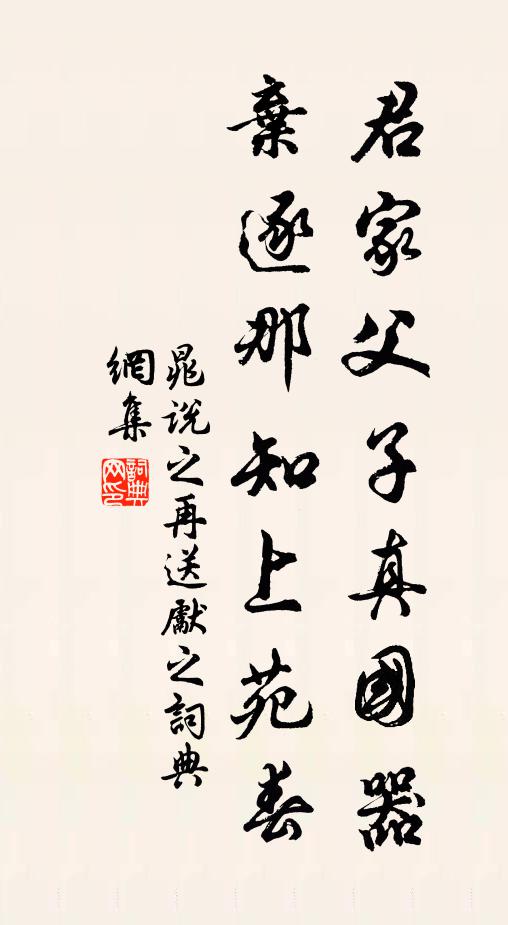 君家父子真國器
棄逐那知上苑春
晁説之再送獻之詞典
網集
詞典
網印